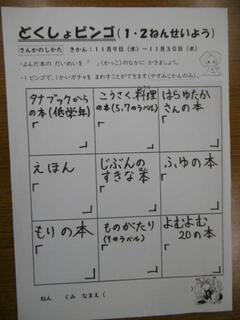 どくしょビンゴ(1・2ねんせいよう)
さんかのしかた　きかん:11月9日(水)ー11月30日(水)
・よんだ本の だいめいを「　」(かっこ)のなかに かきましょう。
・1ビンゴで、1かいガチャを まわすことができます(やすみじかんのみ)。
タナブックから
の本(低学年)
こうさく、料理
の本(5,7のラベル)
はらゆたか
さんの本
えほん
じぶんの
すきな本
ふゆの本
もりの本
ものがたり
(9のラベル)
よむよむ
20の本
ねん　くみ なまえ(　)